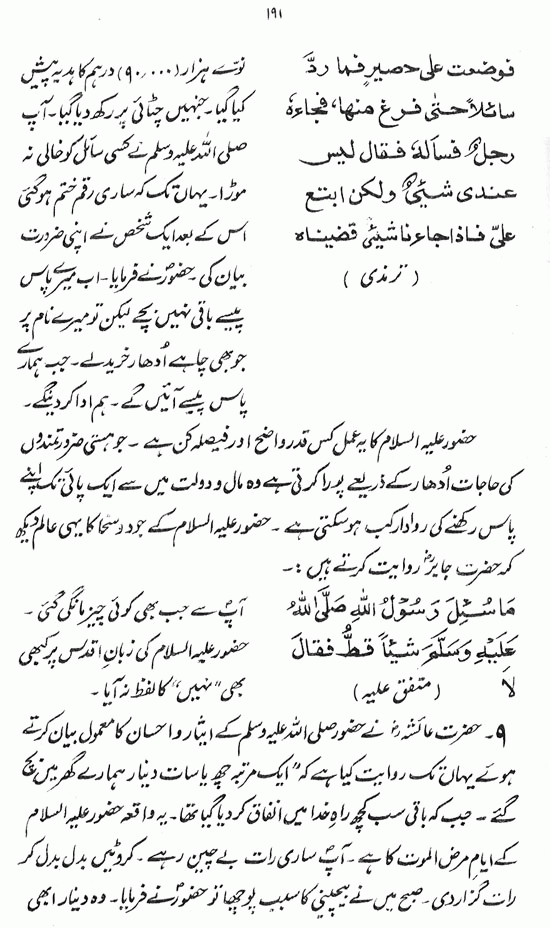 ۱۹۱
فوضعت علی حصیرٍ فما ردَّ
سائلاً حتی فرغ منها، فجاءهٗ
رجلٌ فسألهٗ فقال لیس
عندی شیئیٌ ولکن ابتع
علیَّ فاذا جاءنا شیئیٌ قضیناه
(ترمذی)
نوّے ہزار (۹۰,۰۰۰) درہم کا ہدیہ پیش
کیا گیا۔ جنہیں چٹائی پر رکھ دیا گیا۔ آپ
صلی اللہ علیہ وسلم نے کسی سائل کو خالی نہ
موڑا۔ یہاں تک کہ ساری رقم ختم ہوگئی
اس کے بعد ایک شخص نے اپنی ضرورت
بیان کی۔ حضورؐ نے فرمایا۔ اب میرے پاس
پیسے باقی نہیں بچے لیکن تو میرے نام پر
جو بھی چاہے اُدھار خرید لے۔ جب ہمارے
پاس پیسے آئیں گے۔ ہم ادا کر دینگے۔
حضور علیہ السلام کا یہ عمل کس قدر واضح اور فیصلہ کن ہے۔ جو ہستی ضرورتمندوں
کی حاجات اُدھار کے ذریعے پورا کرتی ہے وہ مال و دولت میں سے ایک پائی تک اپنے
پاس رکھنے کی روادار کب ہو سکتی ہے۔ حضور علیہ السلام کے جود و سخا کا یہی عالم دیکھ
کر حضرت جابرؓ روایت کرتے ہیں :۔
مَا سُئِلَ رَسُوْلُ اللهِ صَلَّی اللهُ
عَلَیْهِ وَسَلَّمَ شَیْئاً قَطُّ فَقَالَ
لَا (متفق علیہ)
آپؐ سے جب بھی کوئی چیز مانگی گئی۔
حضور علیہ السلام کی زبانِ اقدس پر کبھی
بھی "نہیں" کا لفظ نہ آیا۔
۹۔ حضرت عائشہؓ نے حضور صلی اللہ علیہ وسلم کے ایثار و احسان کا معمول بیان کرتے
ہوئے یہاں تک روایت کیا ہے کہ "ایک مرتبہ چھ یا سات دینار ہمارے گھر میں بچ
گئے۔ جب کہ باقی سب کچھ راہِ خدا میں انفاق کر دیا گیا تھا۔ یہ واقعہ حضور علیہ السلام
کے ایامِ مرض الموت کا ہے۔ آپؐ ساری رات بے چین رہے۔ کروٹیں بدل بدل کر
رات گزار دی۔ صبح میں نے بیچینی کا سبب پوچھا تو حضورؐ نے فرمایا۔ وہ دینار ابھی